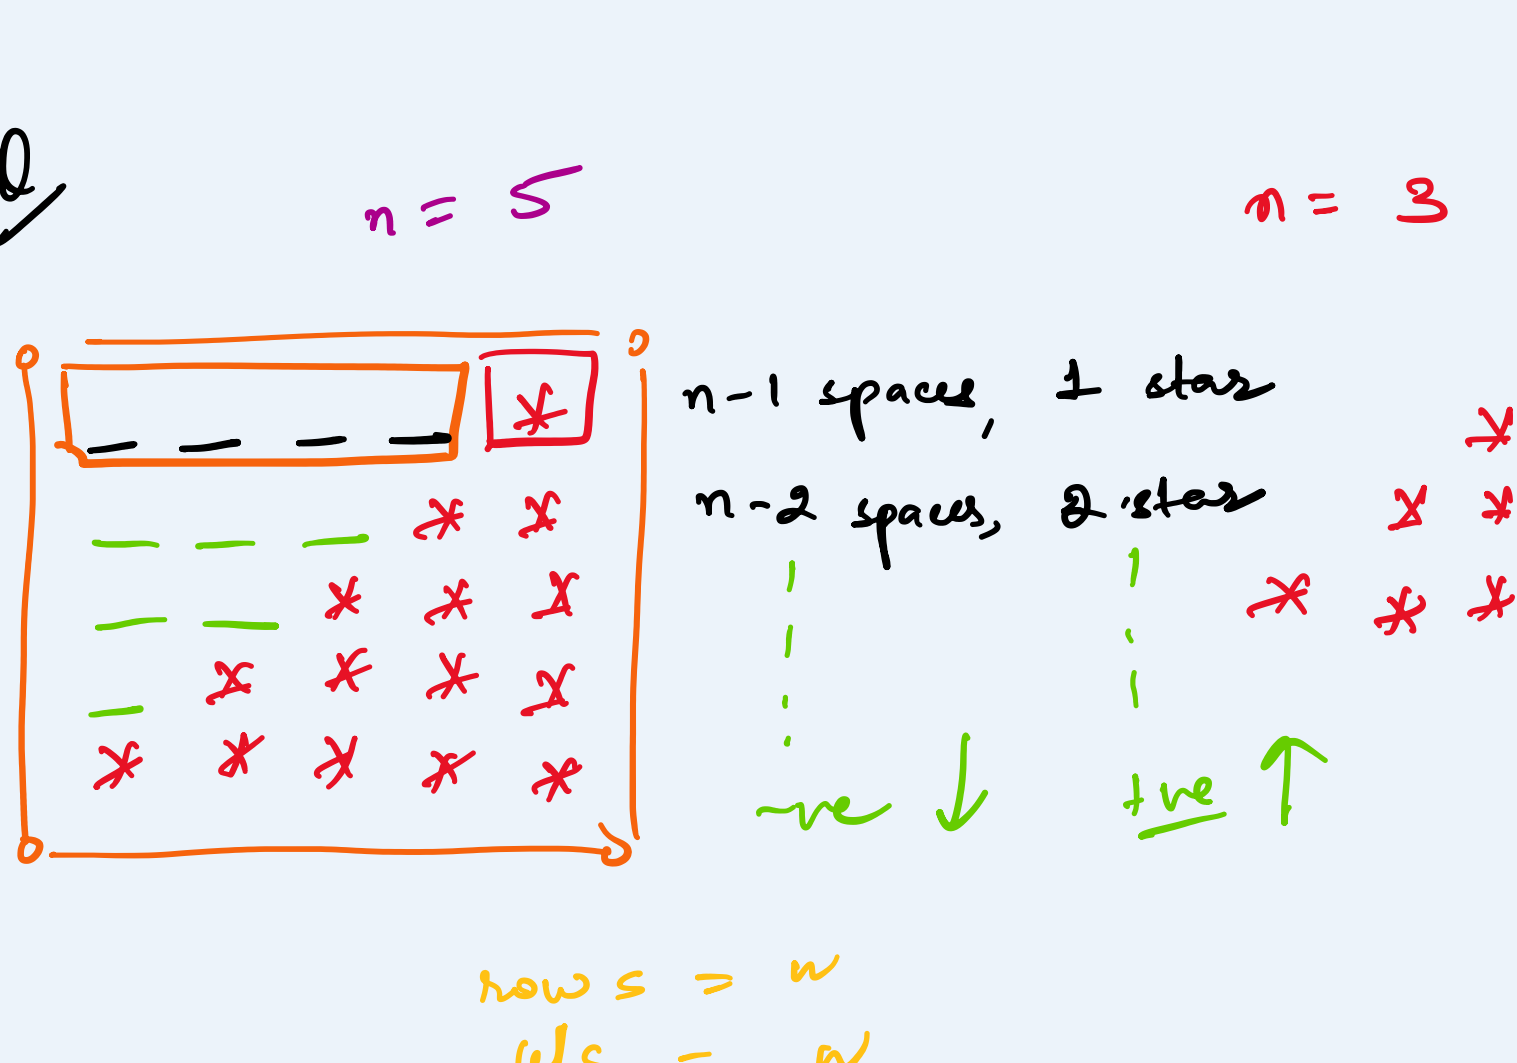 Q
n = 5
n = 3
* n-1 spaces, 1 star
*
_ _ _ _
* * n-2 spaces, 2 star
* *
_ _ _
* * *
* * *
_ _
* * * *
_
* * * * *
-ve ↓ +ve ↑
rows = n
cols = n